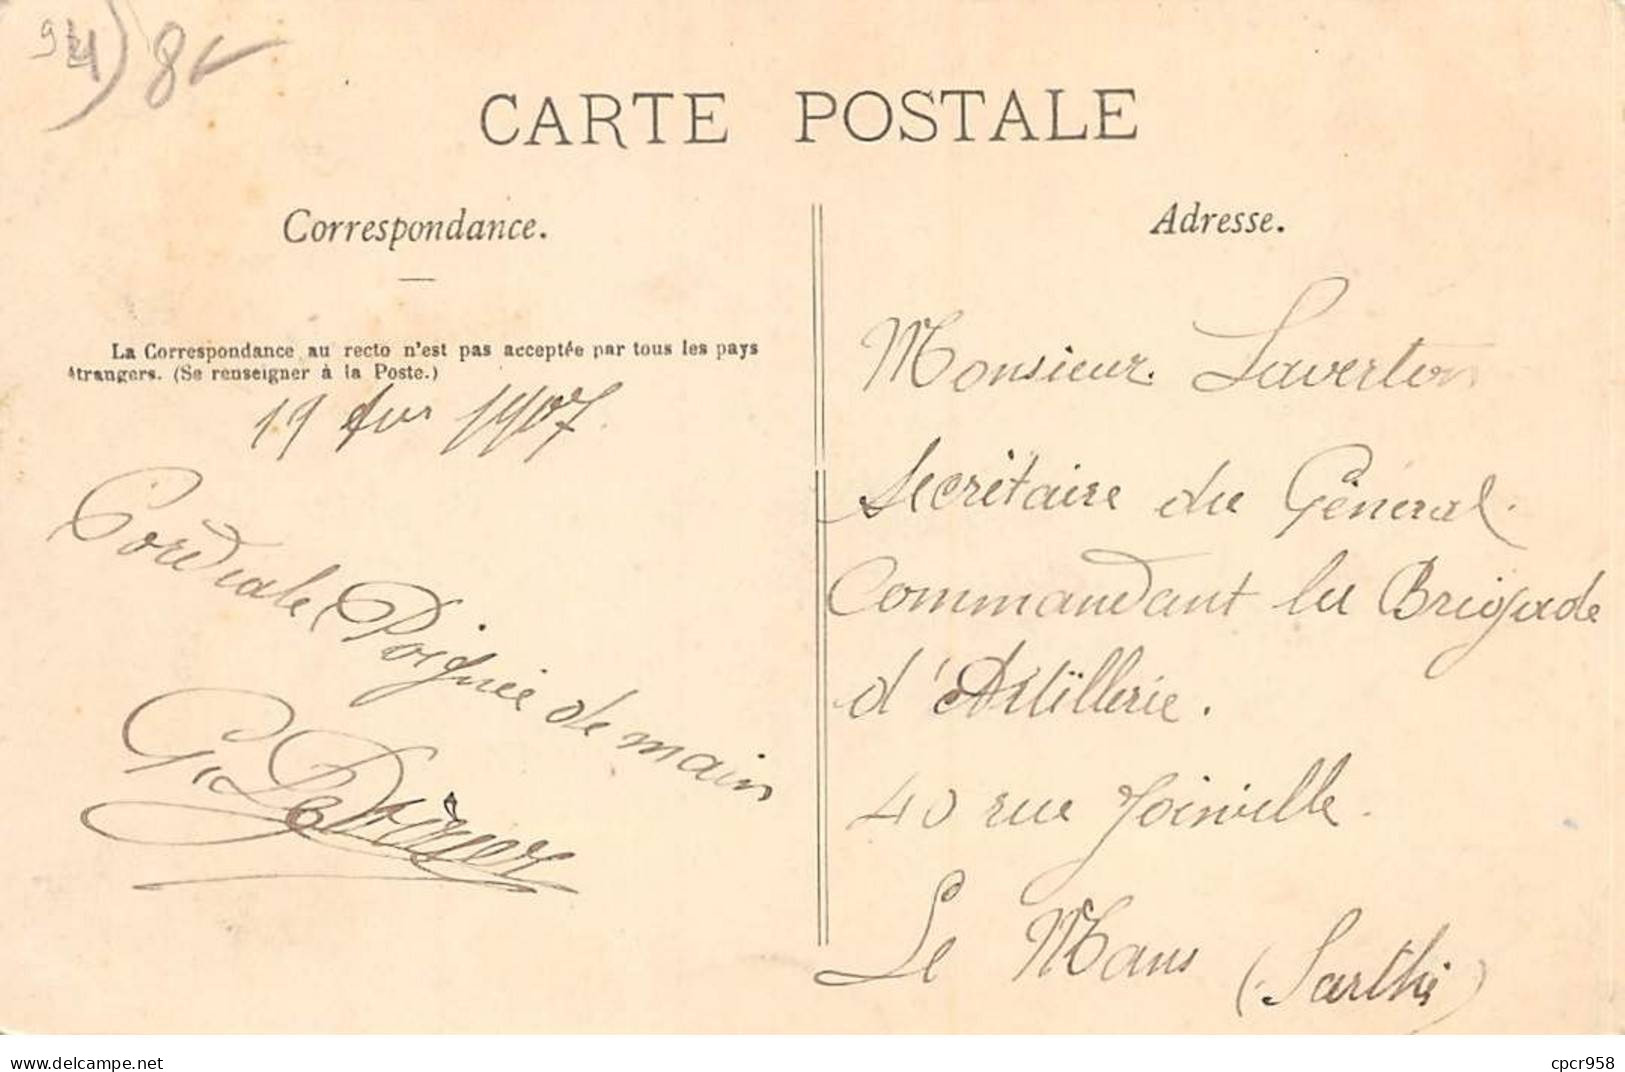 94) 8
CARTE POSTALE
Correspondance.
Adresse.
La Correspondance au recto n'est pas acceptée par tous les pays
étrangers. (Se renseigner à la Poste.)
1907.
Cordiale Poignée de main
G.
Monsieur Laverton
Secrétaire du Général
Commandant la Brigade
d'Artillerie.
40 rue Joinville.
Le Mans (Sarthe)
www.delcampe.net
cpcr958